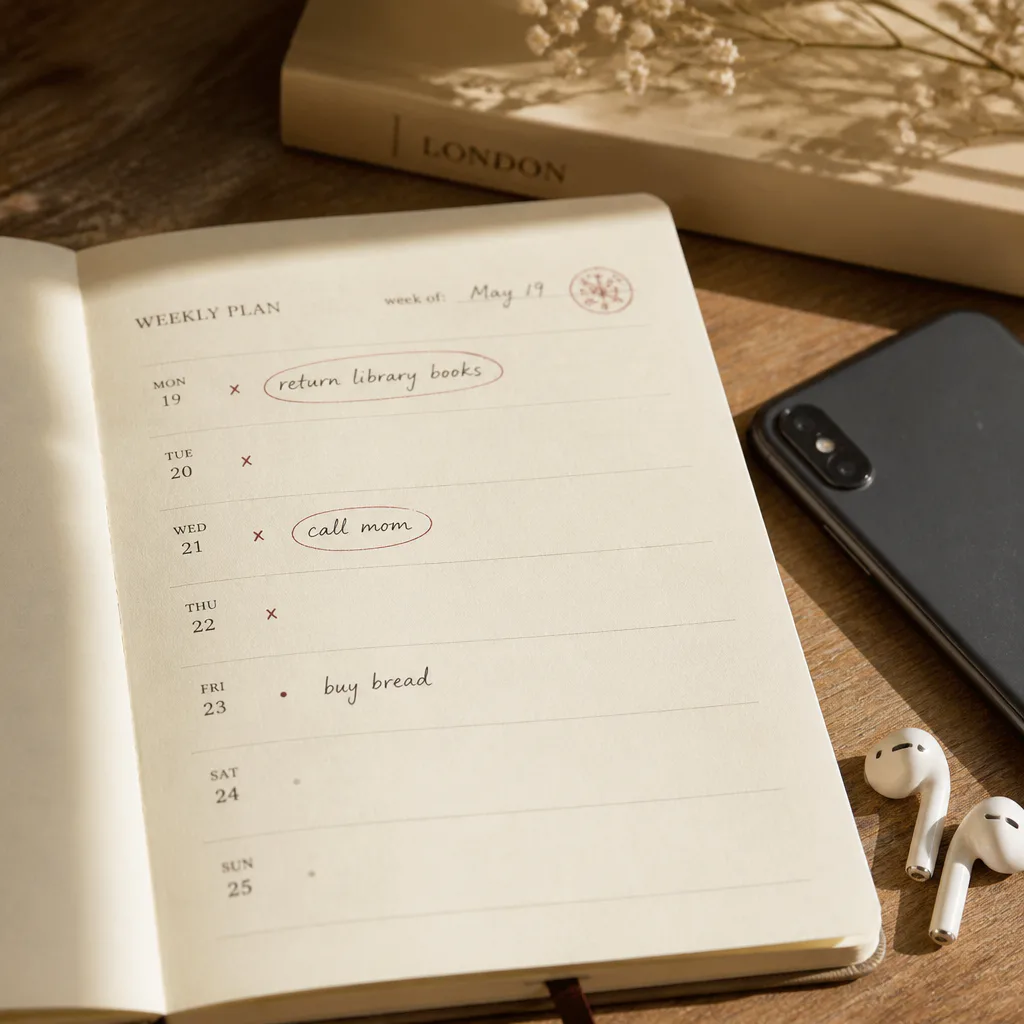 LONDON
WEEKLY PLAN week of: May 19
MON
19 × return library books
TUE
20 ×
WED
21 × call mom
THU
22 ×
FRI
23 • buy bread
SAT
24 •
SUN
25 •